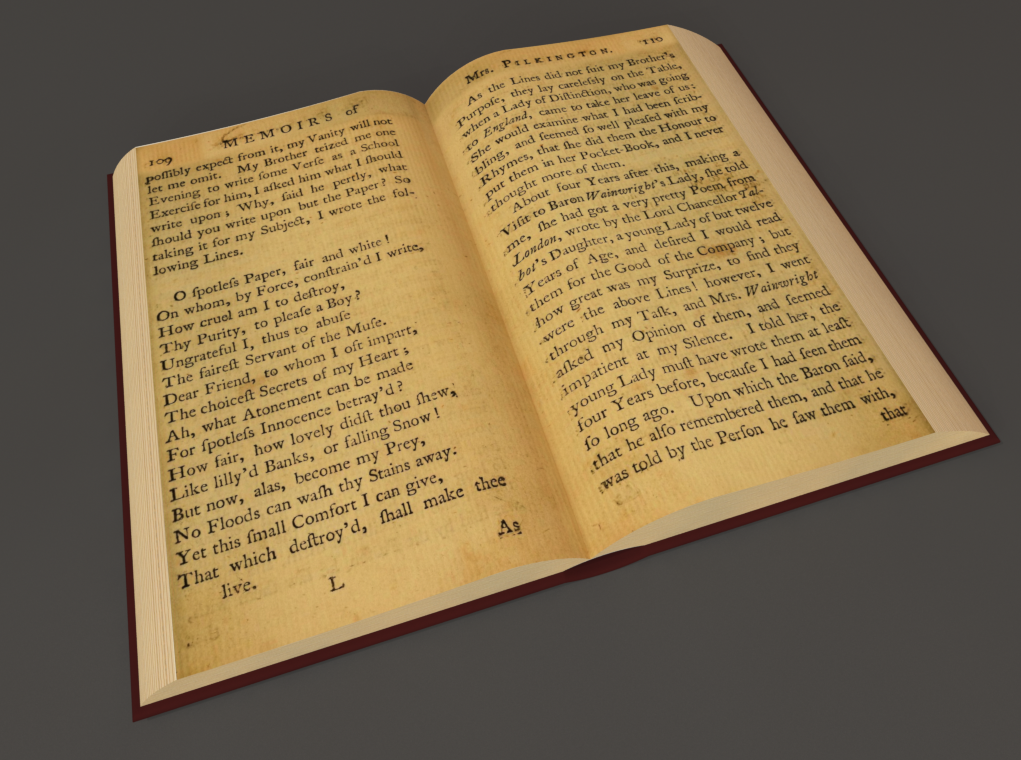 109
MEMOIRS of
poſſibly expect from it, my Vanity will not
let me omit. My Brother teized me one
Evening to write ſome Verſe as a School
Exerciſe for him, I aſked him what I ſhould
write upon; Why, ſaid he pertly, what
ſhould you write upon but the Paper? So
taking it for my Subject, I wrote the fol-
lowing Lines.
O ſpotleſs Paper, fair and white!
On whom, by Force, conſtrain'd I write,
How cruel am I to deſtroy,
Thy Purity, to pleaſe a Boy?
Ungrateful I, thus to abuſe
The faireſt Servant of the Muſe.
Dear Friend, to whom I oft impart,
The choiceſt Secrets of my Heart;
Ah, what Atonement can be made
For ſpotleſs Innocence betray'd?
How fair, how lovely didſt thou ſhew,
Like lilly'd Banks, or falling Snow!
But now, alas, become my Prey,
No Floods can waſh thy Stains away:
Yet this ſmall Comfort I can give,
That which deſtroy'd, ſhall make thee
live.
L
As
Mrs. PILKINGTON. 110
As the Lines did not ſuit my Brother's
Purpoſe, they lay careleſsly on the Table,
when a Lady of Diſtinction, who was going
to England, came to take her leave of us:
She would examine what I had been ſcrib-
bling, and ſeemed ſo well pleaſed with my
Rhymes, that ſhe did them the Honour to
put them in her Pocket-Book, and I never
thought more of them.
About four Years after this, making a
Viſit to Baron Wainwright's Lady, ſhe told
me, ſhe had got a very pretty Poem from
London, wrote by the Lord Chancellor Tal-
bot's Daughter, a young Lady of but twelve
Years of Age, and deſired I would read
them for the Good of the Company; but
how great was my Surprize, to find they
were the above Lines! however, I went
through my Taſk, and Mrs. Wainwright
aſked my Opinion of them, and ſeemed
impatient at my Silence. I told her, the
young Lady muſt have wrote them at leaſt
four Years before, becauſe I had ſeen them
ſo long ago. Upon which the Baron ſaid,
that he alſo remembered them, and that he
was told by the Perſon he ſaw them with,
that